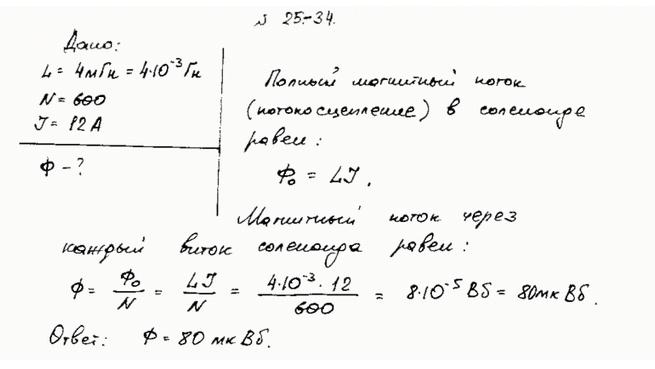 N 25.-34.
Дано:
L = 4мГн = 4·10⁻³Гн
N = 600
J = 12 А
Ф - ?
Полный магнитный поток
(потокосцепление) в соленоиде
равен:
Ф₀ = LJ.
Магнитный поток через
каждый виток соленоида равен:
Ф = Ф₀/N = LJ/N = 4·10⁻³·12/600 = 8·10⁻⁵ Вб = 80мк Вб.
Ответ: Ф = 80 мк Вб.